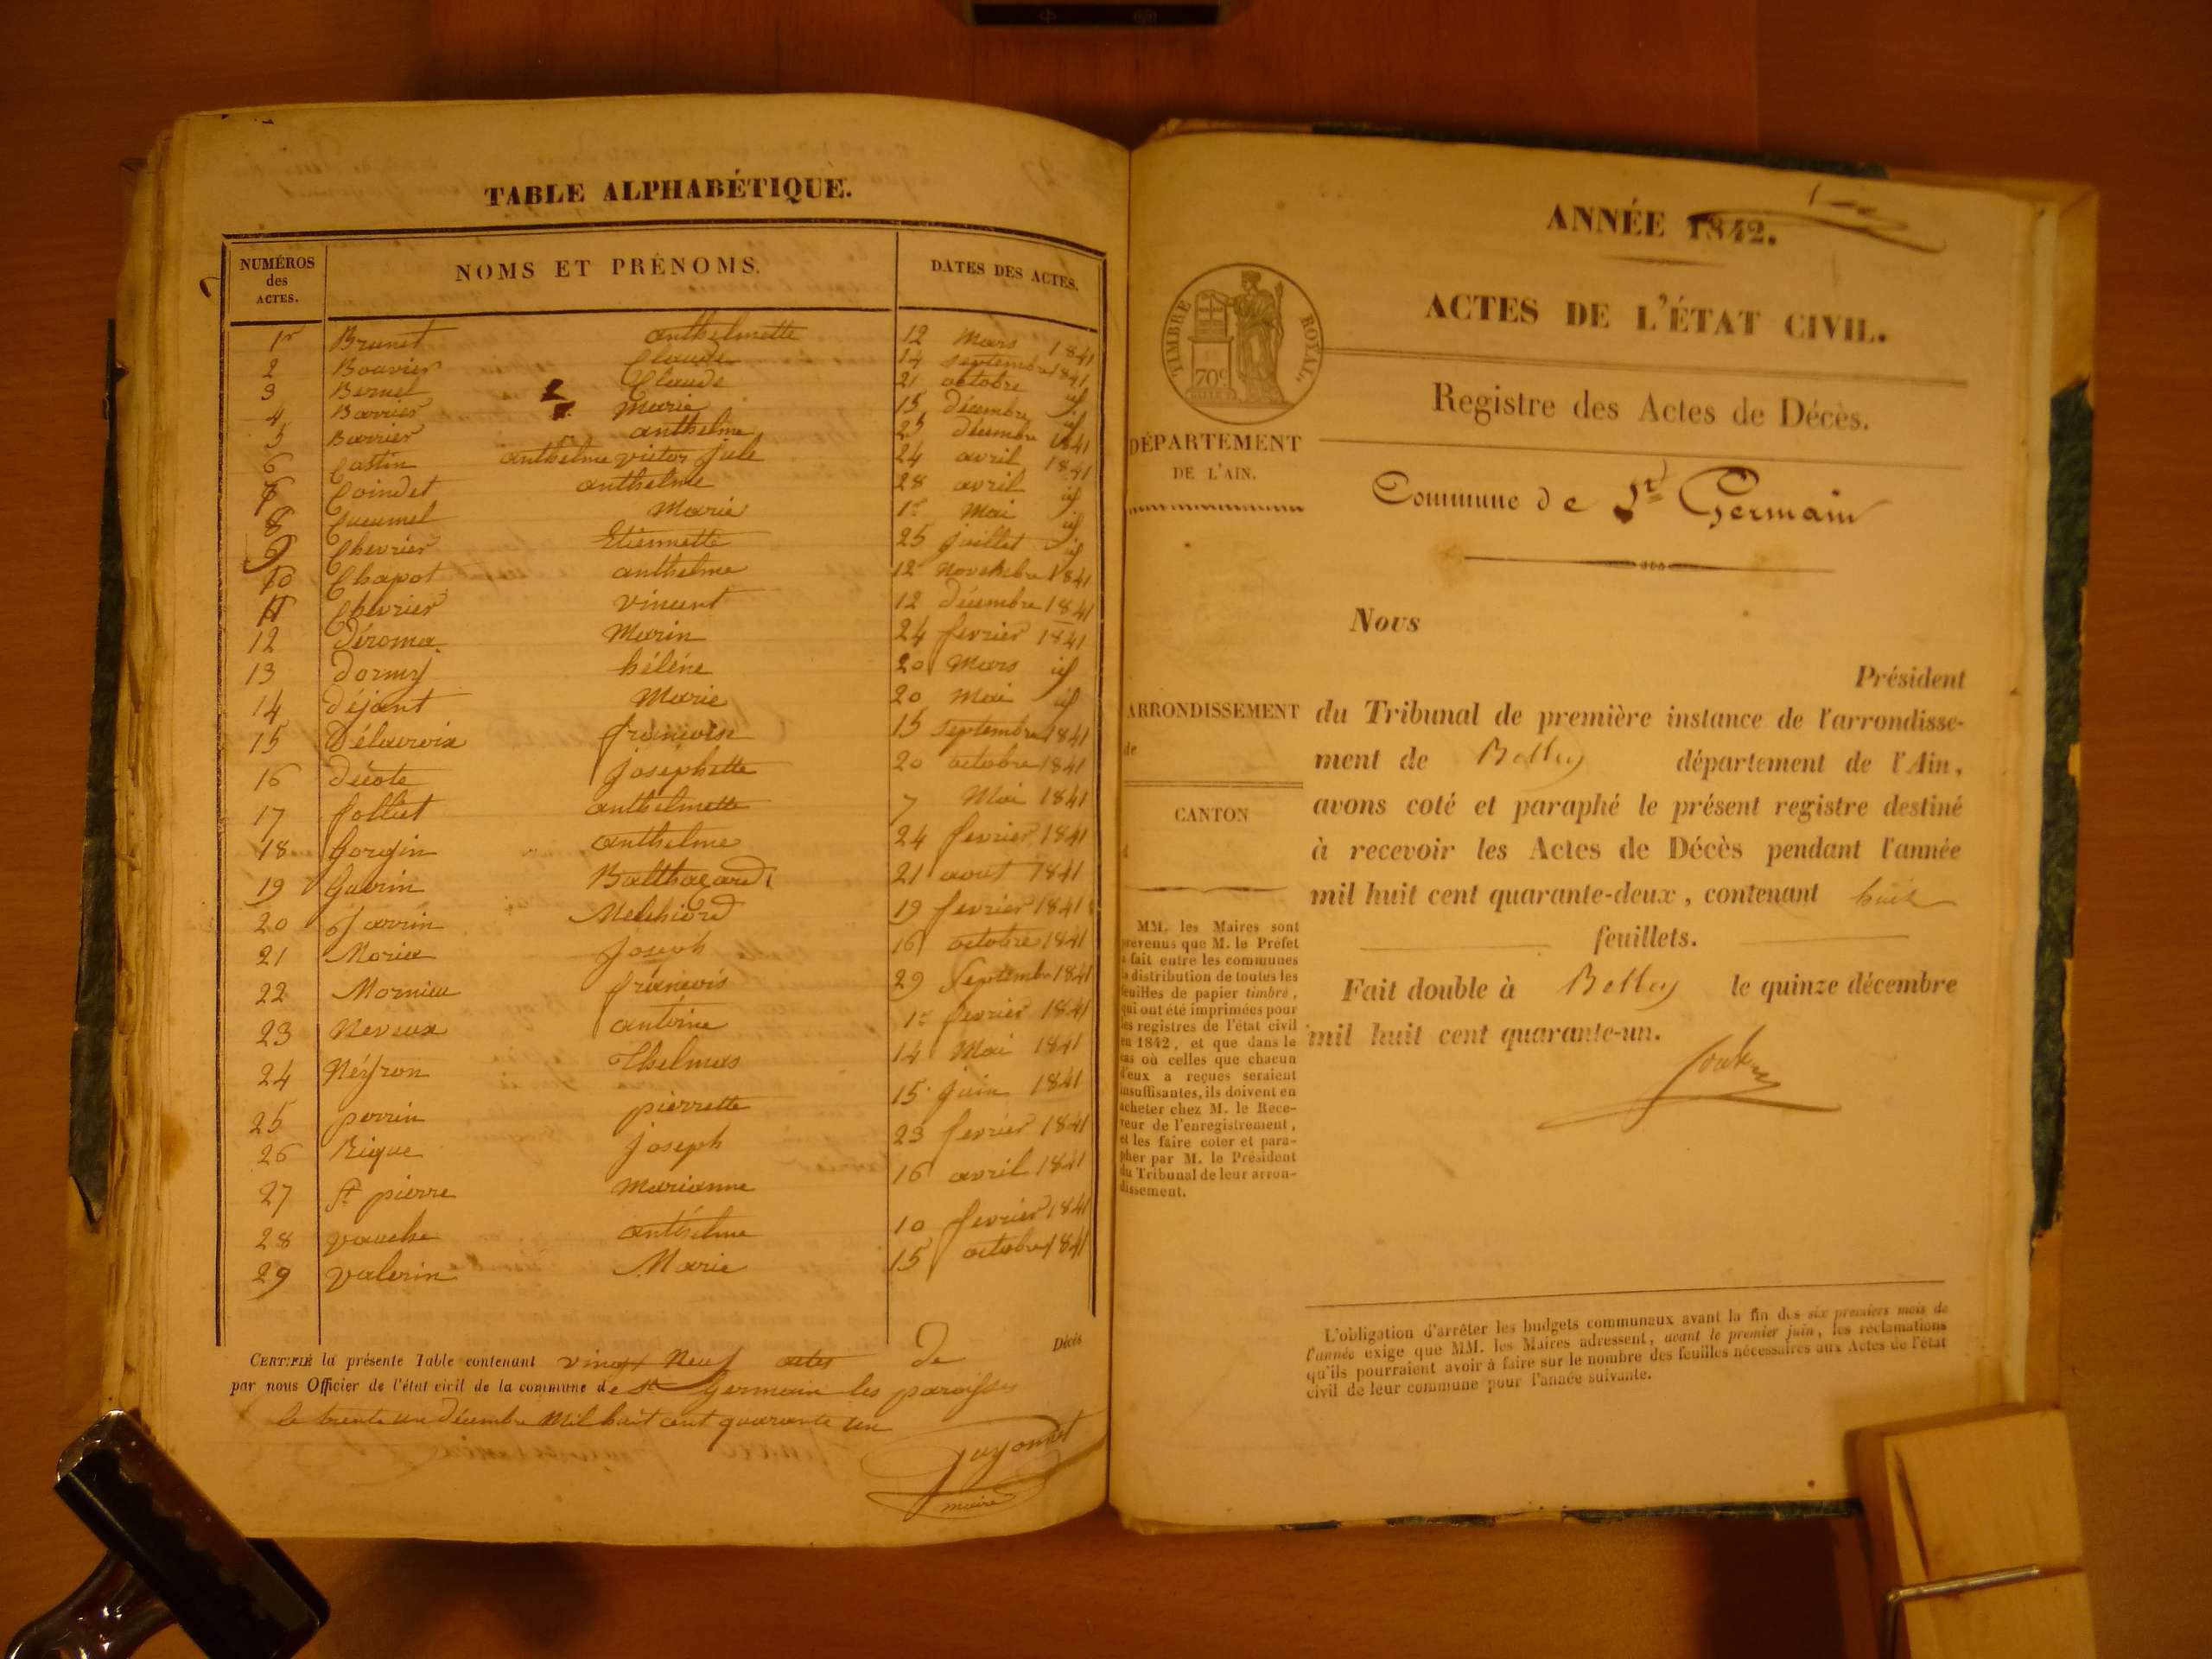 TABLE ALPHABÉTIQUE.
NUMÉROS des ACTES. NOMS ET PRÉNOMS. DATES DES ACTES.
1r Brunet anthelmette 12 Mars 1841
2 Bouvier Claude 14 septembre 1841
3 Bernel Claude 21 octobre id
4 Barrier Marie 15 décembre id
5 Barrier anthelme 25 décembre 1841
6 Castin anthelme victor jule 24 avril 1841
7 Coindet anthelme 28 avril id
8 Marie 1er Mai id
9 Chevrier Etiennette 25 juillet id
10 Chapot anthelme 12 novembre 1841
11 Chevrier vincent 12 décembre 1841
12 Déroma Marin 24 fevrier 1841
13 Dormy hélène 20 Mars id
14 Déjant Marie 20 Mai id
15 Délacroix francoise 15 septembre 1841
16 Décote josephette 20 octobre 1841
17 folliet anthelmette 7 Mai 1841
18 gorgin anthelme 24 fevrier 1841
19 Guerin Balthazard 21 aout 1841
20 Jarrin Melchiord 19 fevrier 1841
21 Morier joseph 16 octobre 1841
22 Mornieu francois 29 Septembre 1841
23 Neveux antoine 1er fevrier 1841
24 Neyron thelmus 14 Mai 1841
25 perrin pierrette 15 juin 1841
26 Rique joseph 23 fevrier 1841
27 St pierre marianne 16 avril 1841
28 vauche anthelme 10 fevrier 1841
29 valerin Marie 15 octobre 1841
CERTIFIÉ la présente Table contenant vingt Neuf actes de Décès
par nous Officier de l'état civil de la commune de St Germain les paroisses
le trente un décembre Mil huit cent quarante un
Guyonnet
maire
ANNÉE 1842.
TIMBRE ROYAL.
70c
ACTES DE L'ÉTAT CIVIL.
Registre des Actes de Décès.
DÉPARTEMENT
DE L'AIN.
Commune de St Germain
Nous
Président
ARRONDISSEMENT
de
CANTON
d
du Tribunal de première instance de l'arrondisse-
ment de Belley département de l'Ain,
avons coté et paraphé le présent registre destiné
à recevoir les Actes de Décès pendant l'année
mil huit cent quarante-deux, contenant huit
feuillets.
Fait double à Belley le quinze décembre
mil huit cent quarante-un.
MM. les Maires sont
prévenus que M. le Préfet
a fait entre les communes
la distribution de toutes les
feuilles de papier timbré,
qui ont été imprimées pour
les registres de l'état civil
en 1842, et que dans le
cas où celles que chacun
d'eux a reçues seraient
insuffisantes, ils doivent en
acheter chez M. le Rece-
veur de l'enregistrement,
et les faire coter et para-
pher par M. le Président
du Tribunal de leur arron-
dissement.
L'obligation d'arrêter les budgets communaux avant la fin des six premiers mois de
l'année exige que MM. les Maires adressent, avant le premier juin, les réclamations
qu'ils pourraient avoir à faire sur le nombre des feuilles nécessaires aux Actes de l'état
civil de leur commune pour l'année suivante.